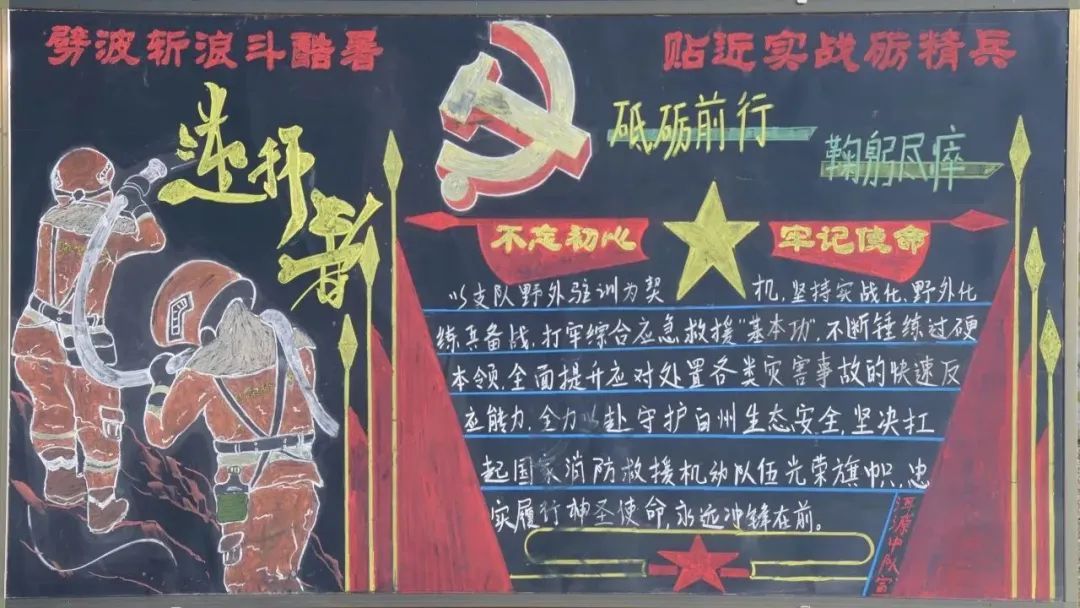 劈波斩浪斗酷暑
贴近实战砺精兵
逆行者
砥砺前行
鞠躬尽瘁
不忘初心
牢记使命
以支队野外驻训为契机,坚持实战化、野外化
练兵备战,打牢综合应急救援"基本功",不断锤练过硬
本领,全面提升应对处置各类灾害事故的快速反
应能力,全力以赴守护白州生态安全,坚决扛
起国家消防救援机动队伍光荣旗帜,忠
实履行神圣使命,永远冲锋在前。